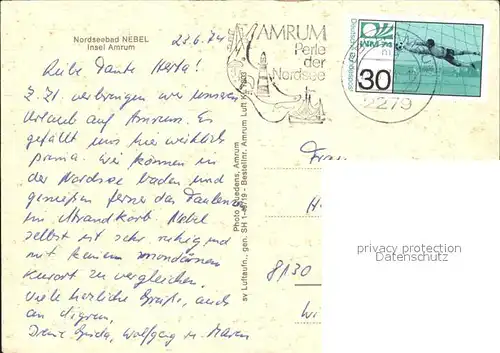 Nordseebad NEBEL
Insel Amrum
23.6.74
Liebe Tante Herta!
Z. Zt. verbringen wir unseren
Urlaub auf Amrum. Es
gefällt uns hier wirklich
prima. Wir können in
der Nordsee baden und
genießen ferner das Faulenzen
im Strandkorb. Nebel
selbst ist sehr ruhig und
mit keinem mondänen
Kurort zu vergleichen.
Viele herzliche Grüße, auch
an
Deine Wolfgang u. Maren
Photo Quedens, Amrum
sv Luftaufn., gen. SH 1- Bestellnr. Amrum Luft
AMRUM
Perle
der
Nordsee
Deutsche Bundespost
WM 74
30
2279
Frau
H
8130
privacy protection
Datenschutz